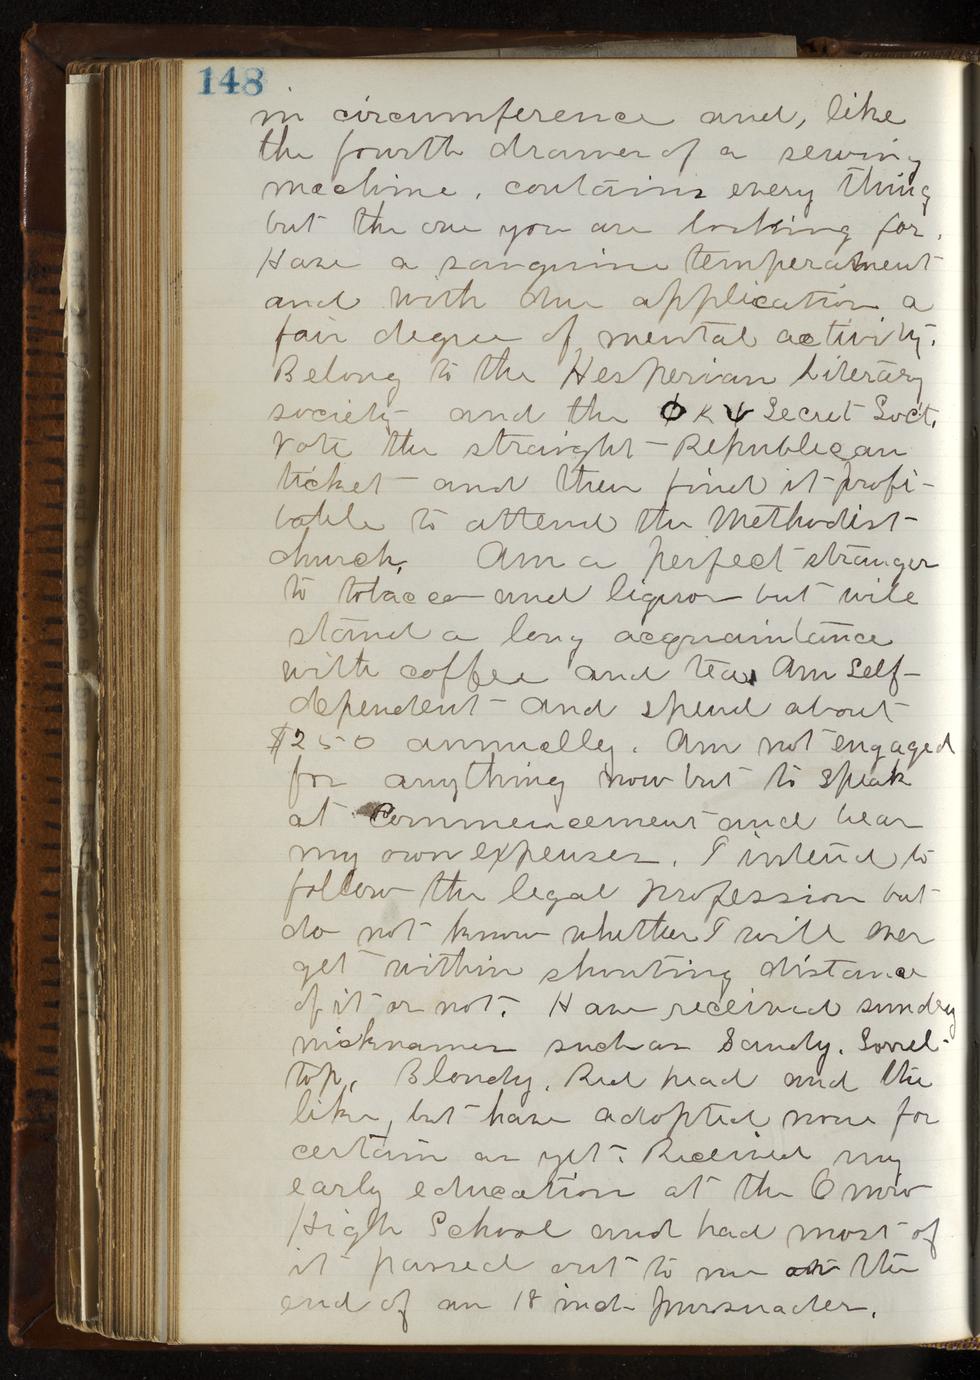 148
in circumference and, like
the fourth drawer of a sewing
machine, contains every thing
but the one you are looking for.
Have a sanguine temperament
and with due application a
fair degree of mental activity.
Belong to the Hesperian Literary
society and the Φ K Ψ Secret Soct.
Vote the straight Republican
ticket and then find it profi-
table to attend the Methodist
church. Am a perfect stranger
to tobacco and liquor but will
stand a long acquaintance
with coffee and tea. Am self-
dependent and spend about
$250 annually. Am not engaged
for anything now but to speak
at Commencement and bear
my own expenses. I intend to
follow the legal profession but
do not know whether I will ever
get within shouting distance
of it or not. Have received sundry
nicknames such as Sandy, Sorrel-
top, Blondy, Red head and the
like, but have adopted none for
certain as yet. Received my
early education at the Omro
High School and had most of
it passed out to me at the
end of an 18 inch pursuader.